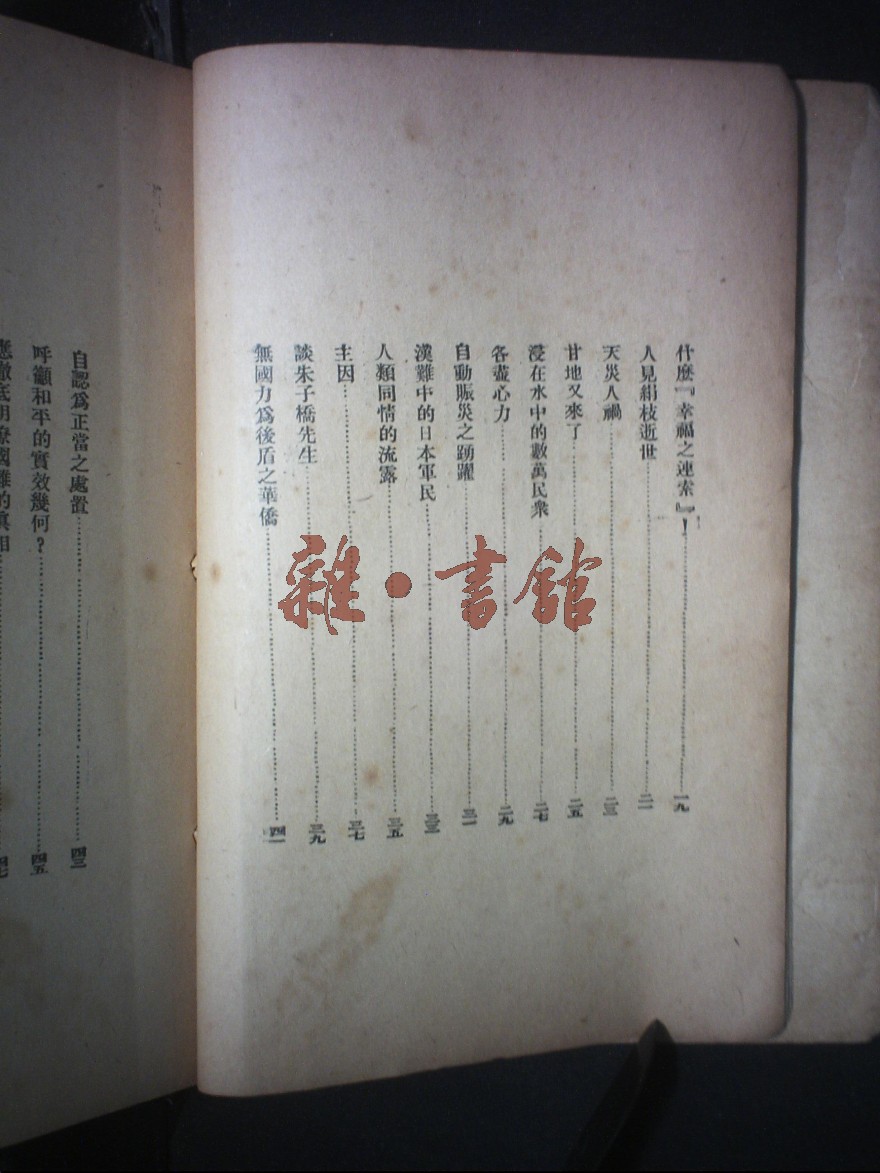 什麽『幸福之連索』！……一九
人見絹枝逝世……二一
天災人禍……二三
甘地又來了……二五
浸在水中的數萬民衆……二七
各盡心力……二九
自動賑災之踴躍……三一
漢難中的日本軍民……三三
人類同情的流露……三五
主因……三七
談朱子橋先生……三九
無國力爲後盾之華僑……四一
自認爲正當之處置……四三
呼籲和平的實效幾何？……四五
應徹底明瞭國難的眞相……四七
雜·書館